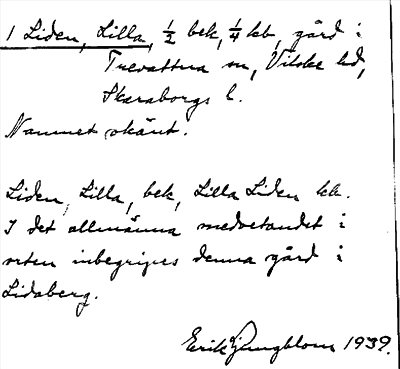 1 Liden, Lilla, ½ bek, ¼ kb, gård i
Trevattna sn, Vilske hd,
Skaraborgs l.
Namnet okänt.
Liden, Lilla, bek, Lilla Liden kb.
I det allmänna medvetandet i
orten inbegripes denna gård i
Lidaberg.
Erik Ljungblom 1939.